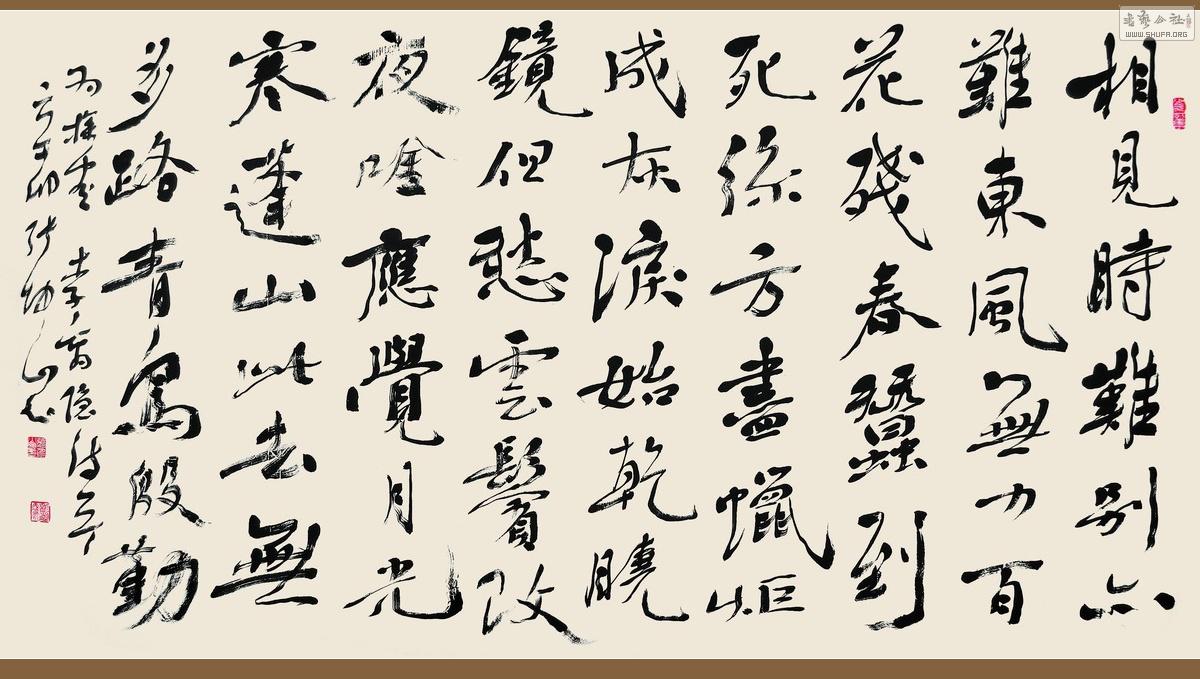 相見時難別亦
難東風無力百
花殘春蠶到
死絲方盡蠟炬
成灰淚始乾曉
鏡但愁雲鬢改
夜吟應覺月光
寒蓬山此去無
多路青鳥殷勤
為探看 李商隱詩
卯
書藝公社
WWW.SHUFA.ORG